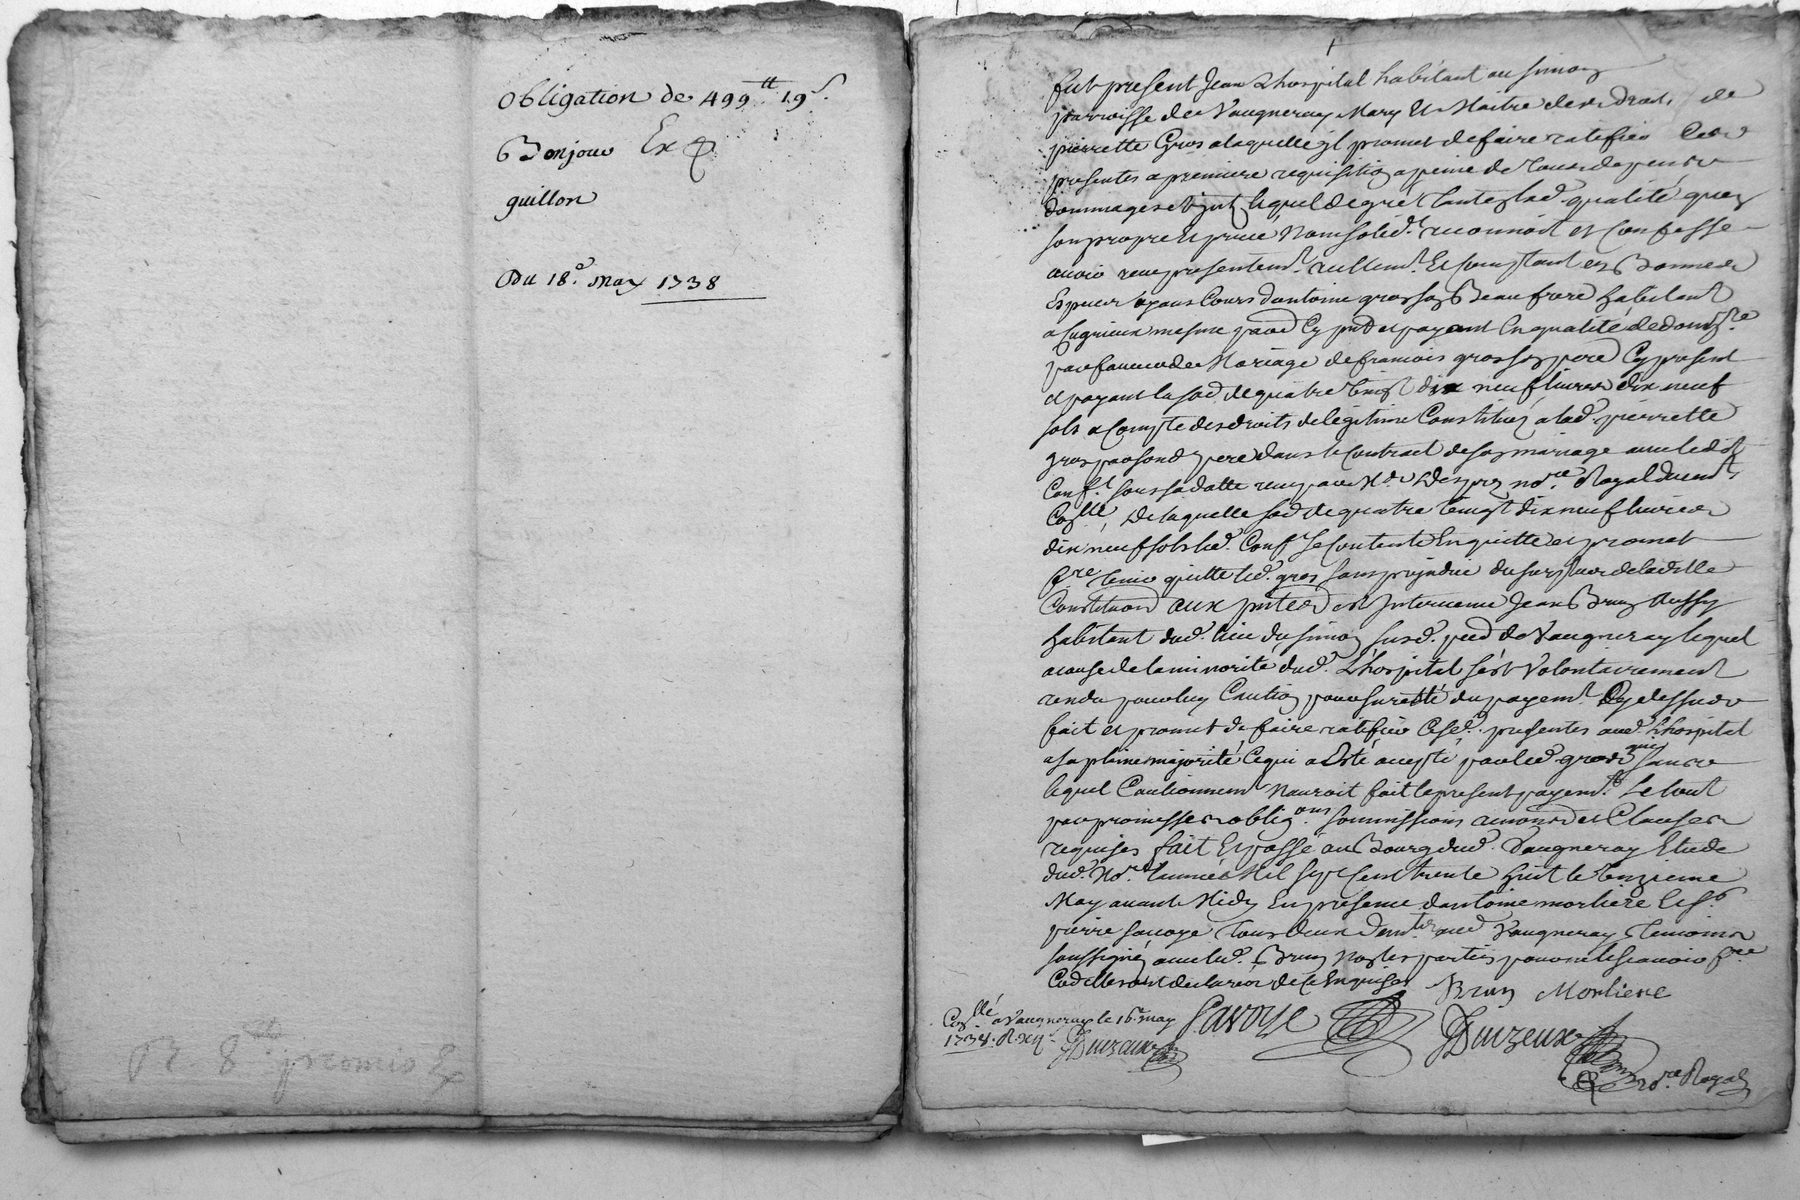 Obligation de 499 tt 19 s.
Bonjour Exp
guillon
Du 18e. May 1738
R. 8
fut present Jean Lhospital habitant au simon
parroisse de Vaugneray Mary Et Maitre des droits de
pierrette Gros a laquelle il promet de faire ratifier Ces
presentes a premiere requisition a peine de tous depens
dommages et lequel de gré tant esd. qualité quen
son propre Et privé Nom solid.t reconnoit et Confesse
avoir receu presentem.t reellem.t Et Comptant en Bonnes
Especes ayans Cours dantoine gros son Beaufrere habitant
a mesme par.d Cy pnt et payant En qualité de donat.re
par faveur de Mariage de francois gros son pere Cy present
et payant la so.e de quatre vingt dix neuf livres dix neuf
sols a Compte des droits de legitime Constitués a lad. pierrette
gros par sond. pere dans le Contrat de son mariage avec ledit
Conf.t sous sa datte receu par M.e Desprez no.re Royal duem.t
Con.llé, De laquelle so.e de quatre vingt dix neuf livres
dix neuf sols led. Conf.t se Contente En quitte et promet
f.re tenir quitte led. gros sans prejudice du surplus de ladite
Constitution aux pntes est Intervenu Jean Brun Aussy
habitant dud. lieu du simon susd. par.d de Vaugneray lequel
a cause de la minorité dud. Lhospital s'est Volontairement
rendu pour luy Caution pour sureté du payem.t Cy dessus
fait et promet de faire ratifier Cesd. presentes aud. Lhospital
a sa pleine majorité Ce qui a Eté accepté par led. gros sans
lequel Cautionnem.t N'auroit fait le present payem.t Le tout
par promesses oblig.ons soumissions renon.ons et Clauses
requises fait Et passé au Bourg dud. Vaugneray Etude
dud. No.re L'année Mil sept Cent trente huit le onzieme
May avant Midy En presence dantoine morliere Et s.r
pierre savoye tous deux dem.ts aud. Vaugneray temoins
soussignés avec led. Brun Non les parties pour ne le scavoir f.re
Ce dellesont declaré de Ce Enquises
Brun Morliere
Con.llé a Vaugneray le 16e may Savoye Duizeux
1738. R. xii s. Duizeux
no.re Royal